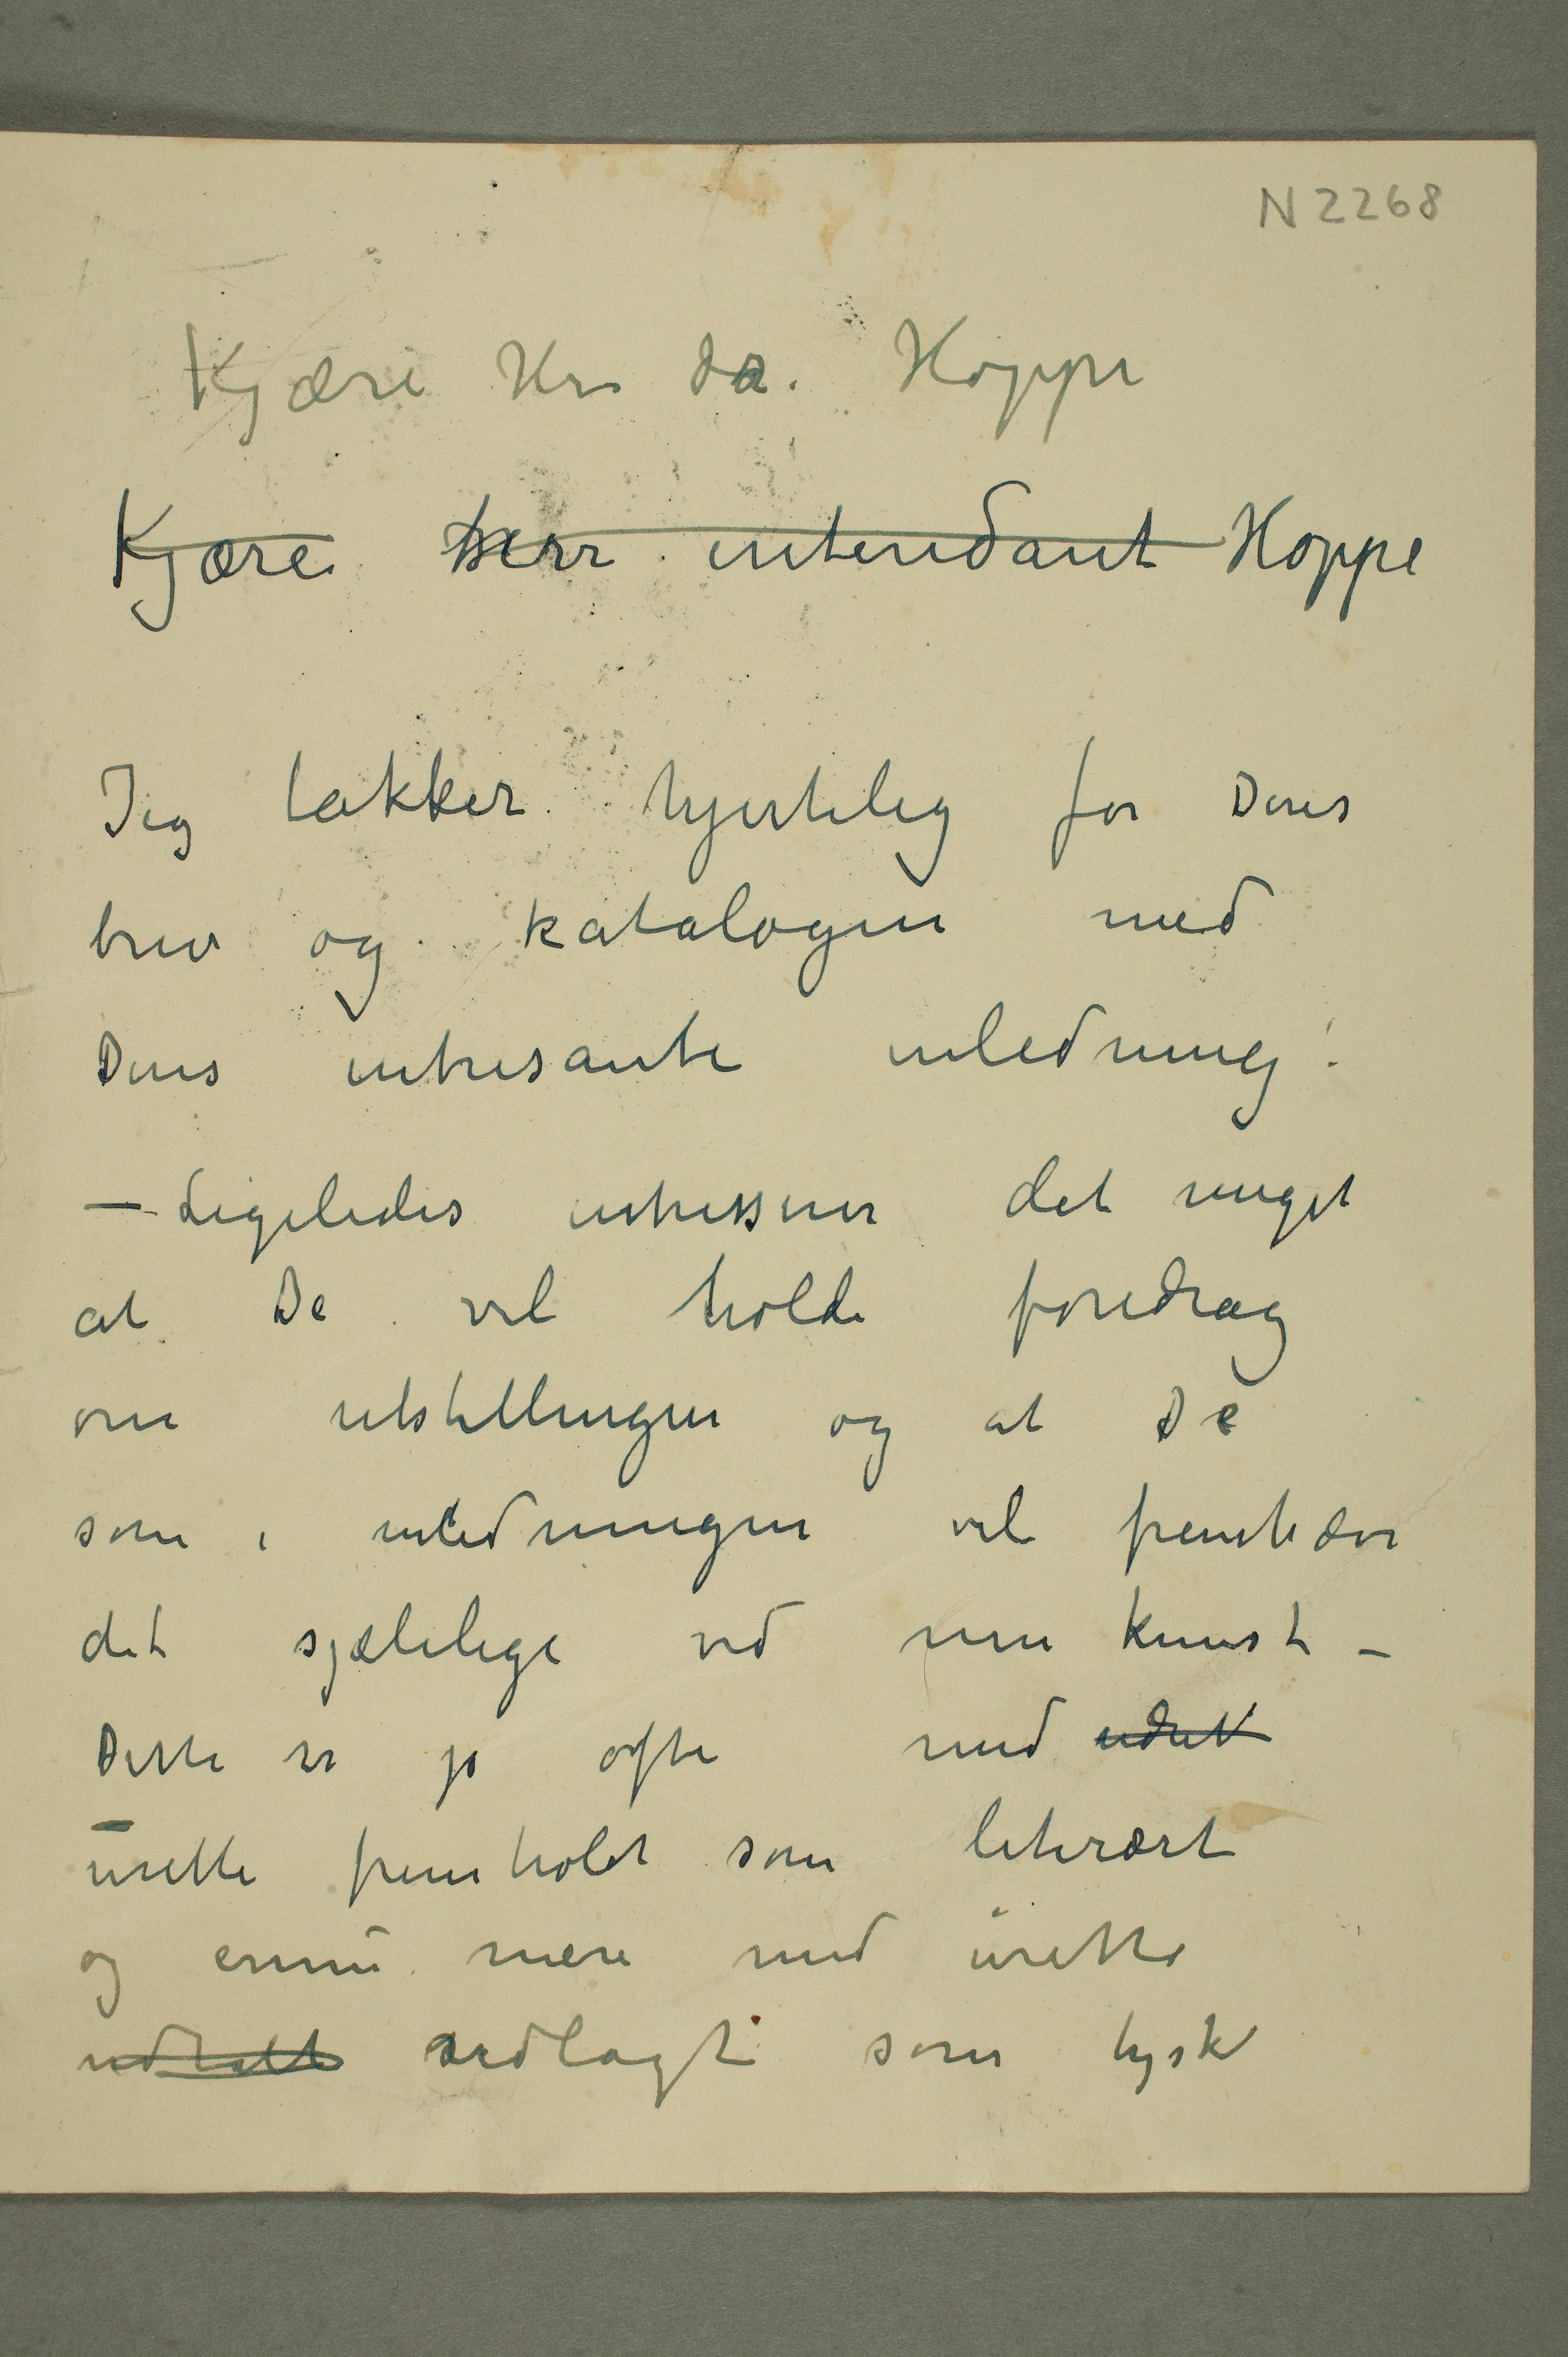 N 2268
Kjære Hr. dr. Hoppe
Kjære herr intendant Hoppe
Jeg takker hjertelig for Deres
brev og katalogen med
Deres intresante inledning.
– Ligeledes intresserer det meget
at De vil holde foredrag
om utstillingen og at De
som i inledningen vil fremhæve
det sjælelige ved min kunst –
Dette er jo ofte med
urette fremholdt som literært
og ennu mere med urette
udtalt udlagt som tysk